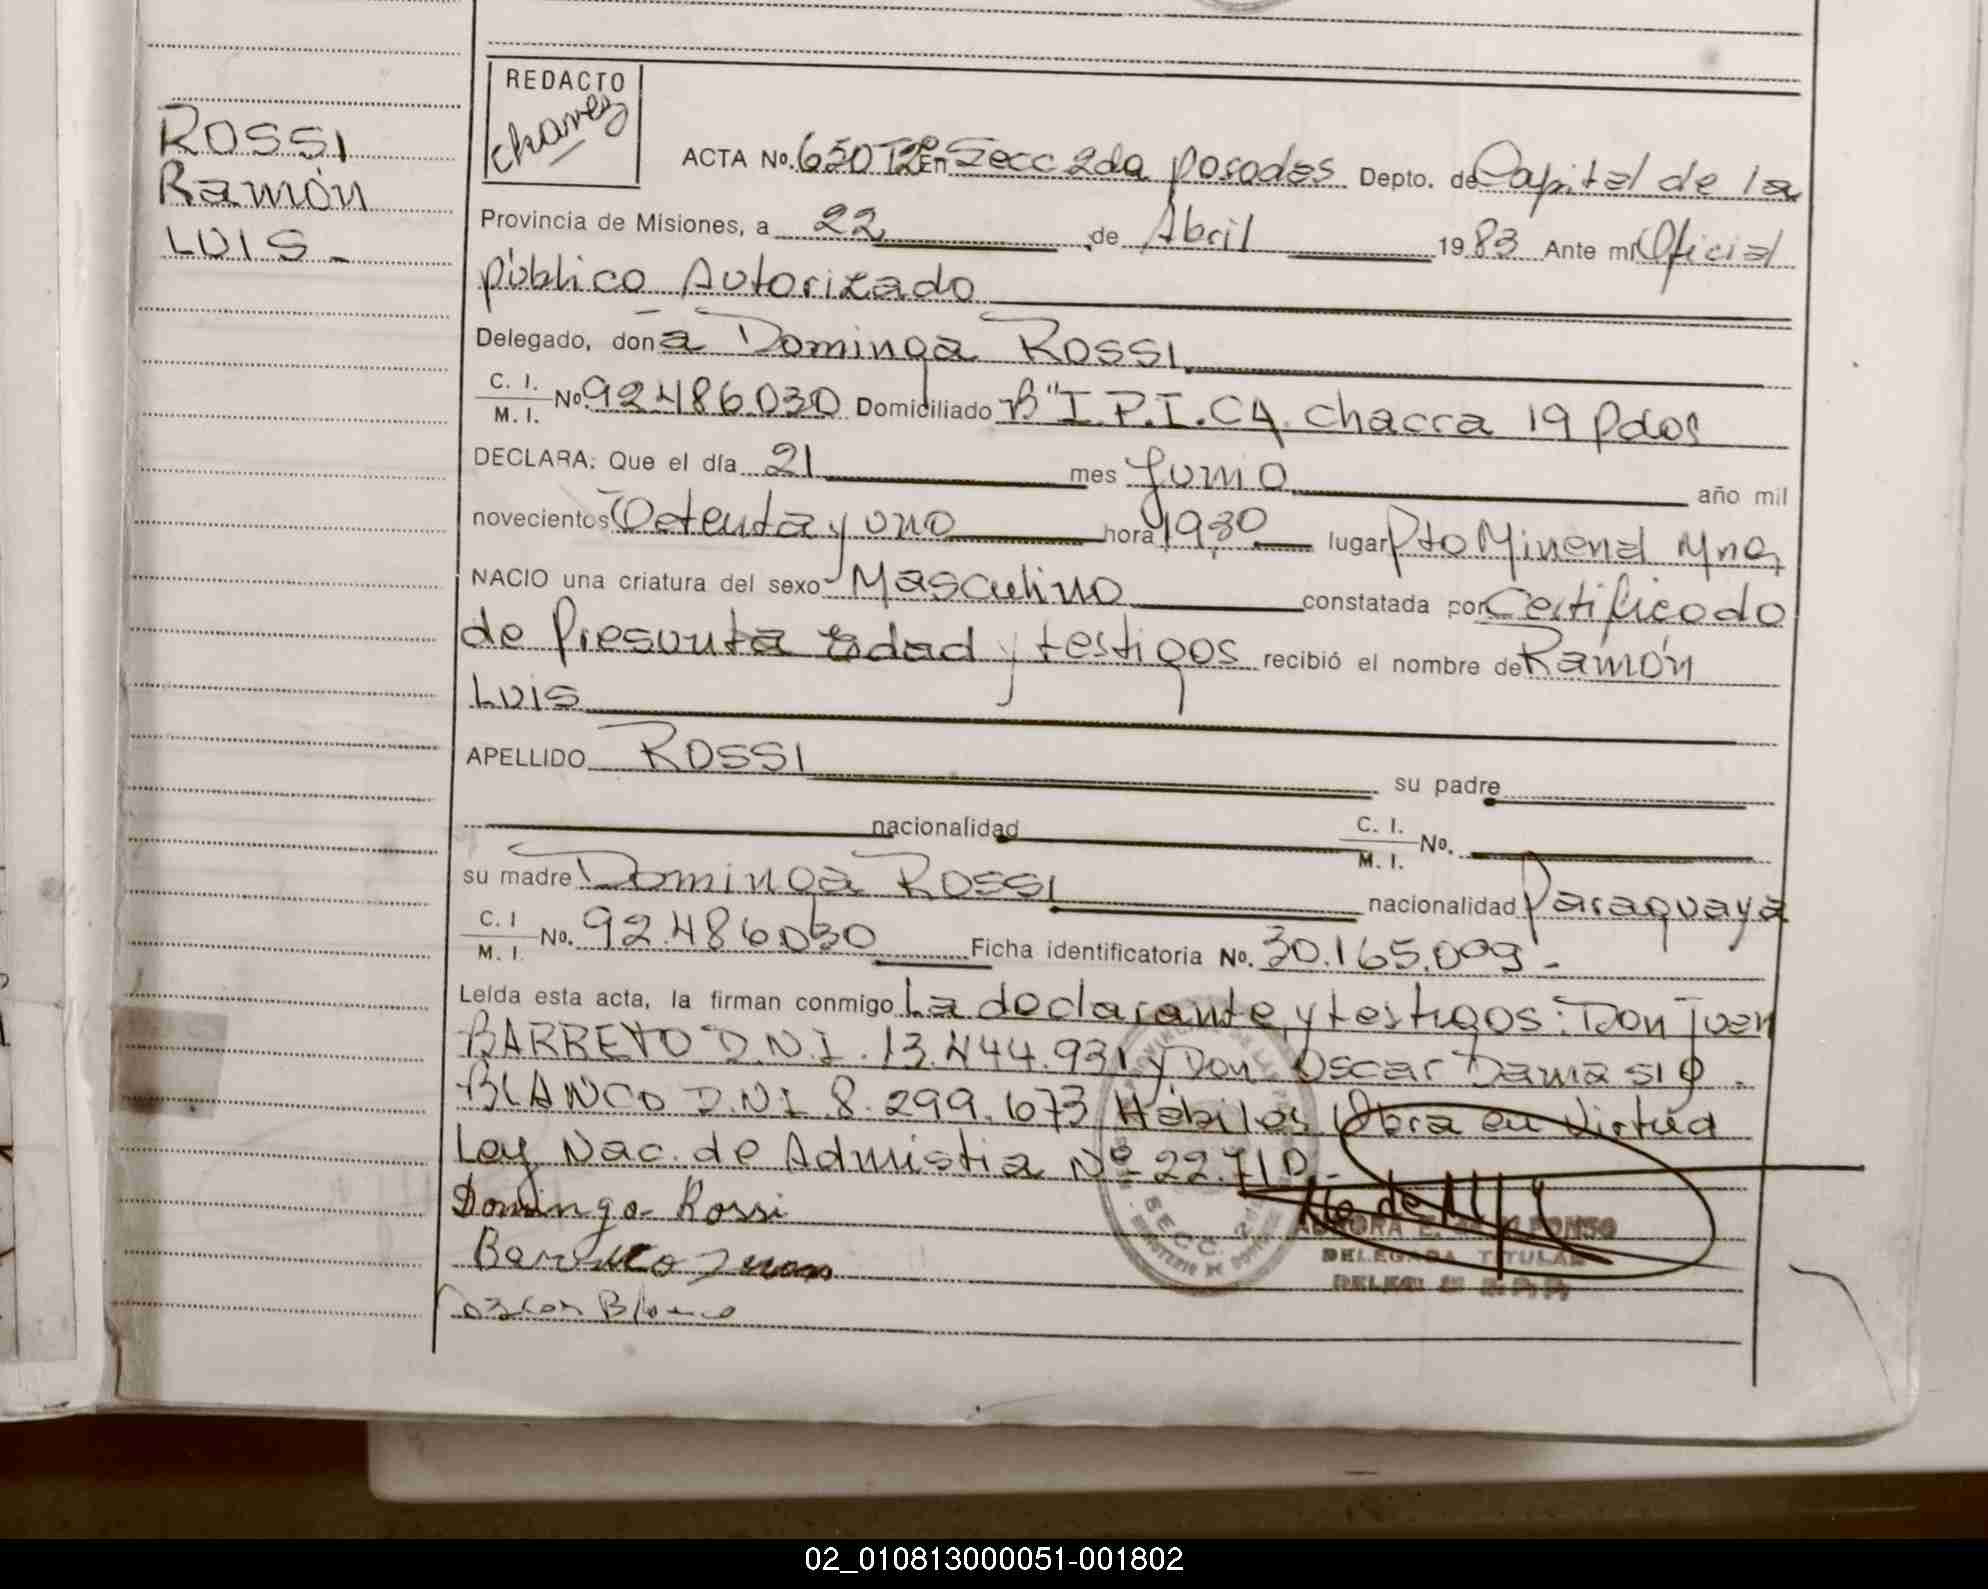 REDACTO
Chavez
ROSSI
Ramón
LUIS.-
ACTA No. 650 Tº2º En Secc 2da posadas Depto. de Capital de la
Provincia de Misiones, a 22 de Abril 1983 Ante mi Oficial
público Autorizado
Delegado, don a Dominga ROSSI
C. I.
M. I. No 92.486.030 Domiciliado Bº I.P.I.C4. chacra 19 Pdas
DECLARA: Que el día 21 mes Junio año mil
novecientos Setenta y uno hora 19,30 lugar Pto Mineral Mnes
NACIO una criatura del sexo Masculino constatada por Certificado
de Presunta Edad y testigos recibió el nombre de Ramón
LUIS
APELLIDO ROSSI su padre
nacionalidad C. I.
M. I. No.
su madre Dominga ROSSI nacionalidad Paraguaya
C. I
M. I. No. 92.486030 Ficha identificatoria No. 30.165.009.-
Leída esta acta, la firman conmigo La declarante y testigos: Don Juan
BARRETO D.N.I. 13.444.931 y Don Oscar Damasio
BLANCO D.N.I. 8.299.673 Hábiles Obra en virtud
Ley Nac. de Admistia Nº 22.710.-
Dominga Rossi
Barreto Juan
Oscar Blanco
DELEGADA TITULAR
SECC. 2
02_010813000051-001802